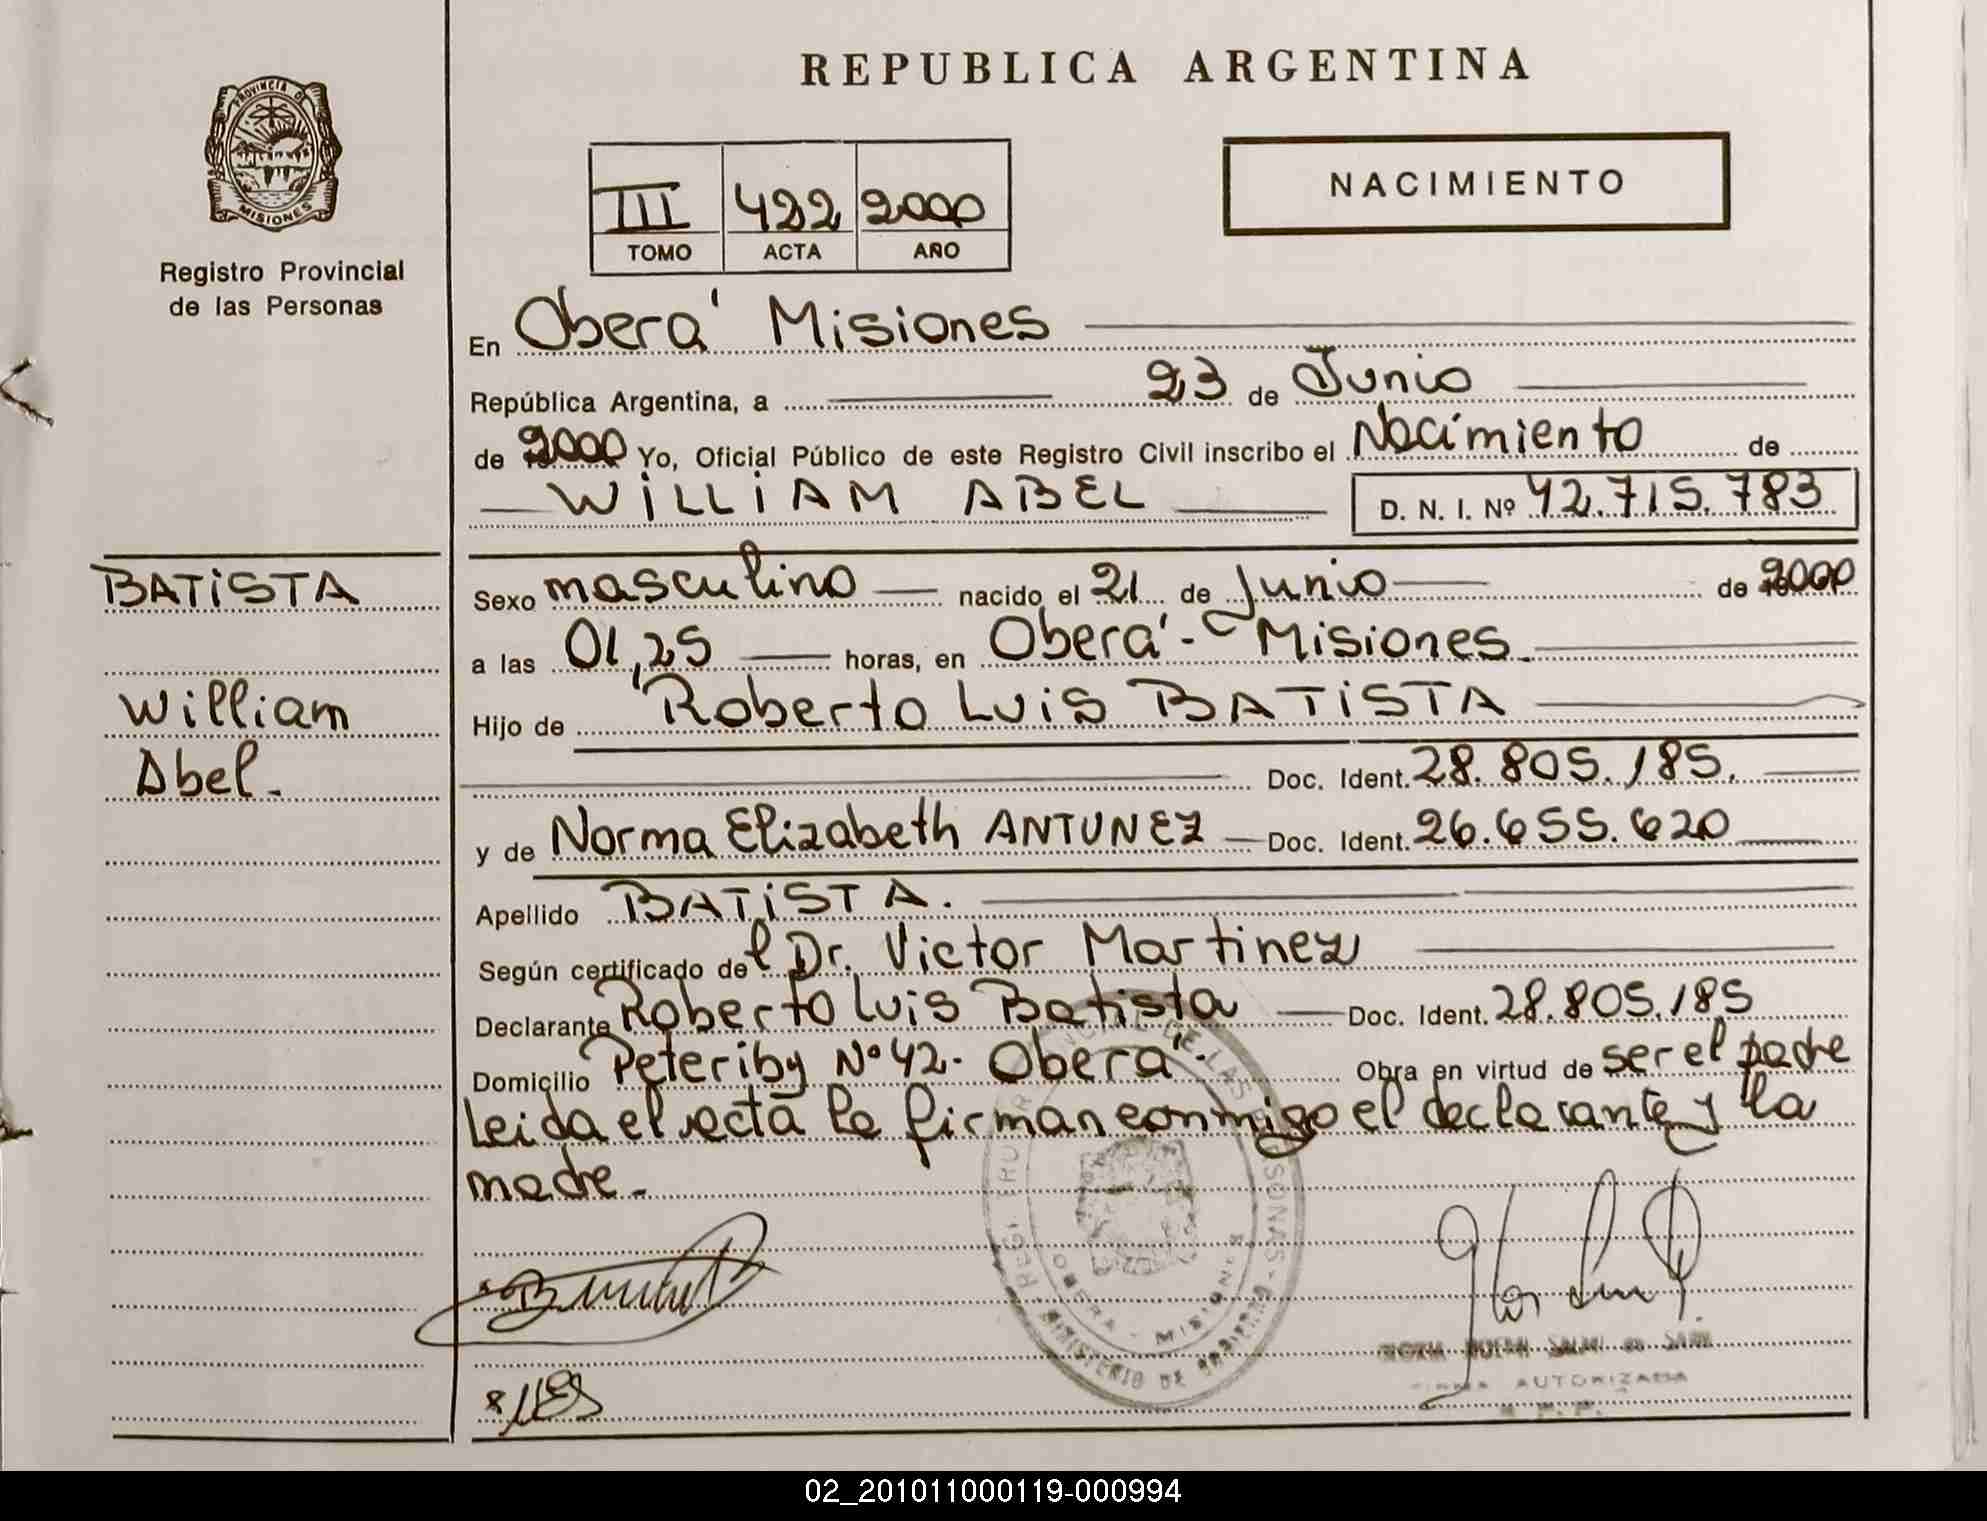 REPUBLICA ARGENTINA
PROVINCIA DE
MISIONES
Registro Provincial
de las Personas
III 422 2000
TOMO ACTA AÑO
NACIMIENTO
En Oberá Misiones
República Argentina, a 23 de Junio
de 2000 Yo, Oficial Público de este Registro Civil inscribo el Nacimiento de
WILLIAM ABEL D. N. I. Nº 42.715.783
BATISTA
William
Abel.
Sexo masculino nacido el 21 de Junio de 2000
a las 01,25 horas, en Oberá - Misiones
Hijo de Roberto Luis BATISTA
Doc. Ident. 28.805.185.
y de Norma Elizabeth ANTUNEZ Doc. Ident. 26.655.620
Apellido BATISTA.
Según certificado del Dr. Victor Martinez
Declarante Roberto Luis Batista Doc. Ident. 28.805.185
Domicilio Peteriby Nº 42- Oberá. Obra en virtud de ser el padre
Leida el acta la firman conmigo el declarante y la
madre.
DE LAS PERSONAS
OBERA - MISIONES
MINISTERIO DE GOBIERNO
FIRMA AUTORIZADA
02_201011000119-000994